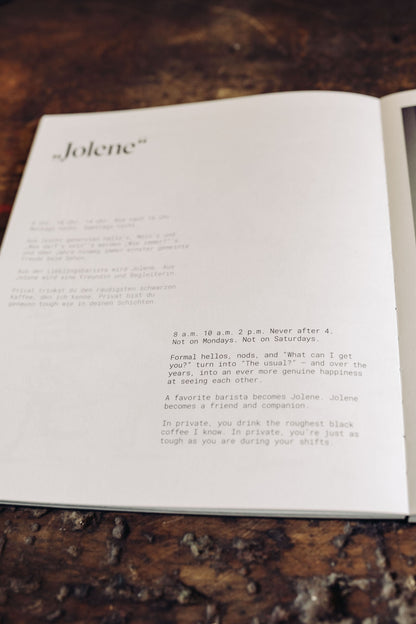 „Jolene“
8 Uhr. 10 Uhr. 14 Uhr. Nie nach 16 Uhr.
Montags nicht. Samstags nicht.
Aus leicht genervten Hallo's, Moin's und
und über Jahre hinweg immer ernster gemeinte
Freude beim Sehen.
Aus der Lieblingsbarista wird Jolene. Aus
Jolene wird eine Freundin und Begleiterin.
Privat trinkst du den räudigsten schwarzen
Kaffee, den ich kenne. Privat bist du
genauso tough wie in deinen Schichten.
8 a.m. 10 a.m. 2 p.m. Never after 4.
Not on Mondays. Not on Saturdays.
Formal hellos, nods, and "What can I get
you?" turn into "The usual?" — and over the
years, into an ever more genuine happiness
at seeing each other.
A favorite barista becomes Jolene. Jolene
becomes a friend and companion.
In private, you drink the roughest black
coffee I know. In private, you're just as
tough as you are during your shifts.